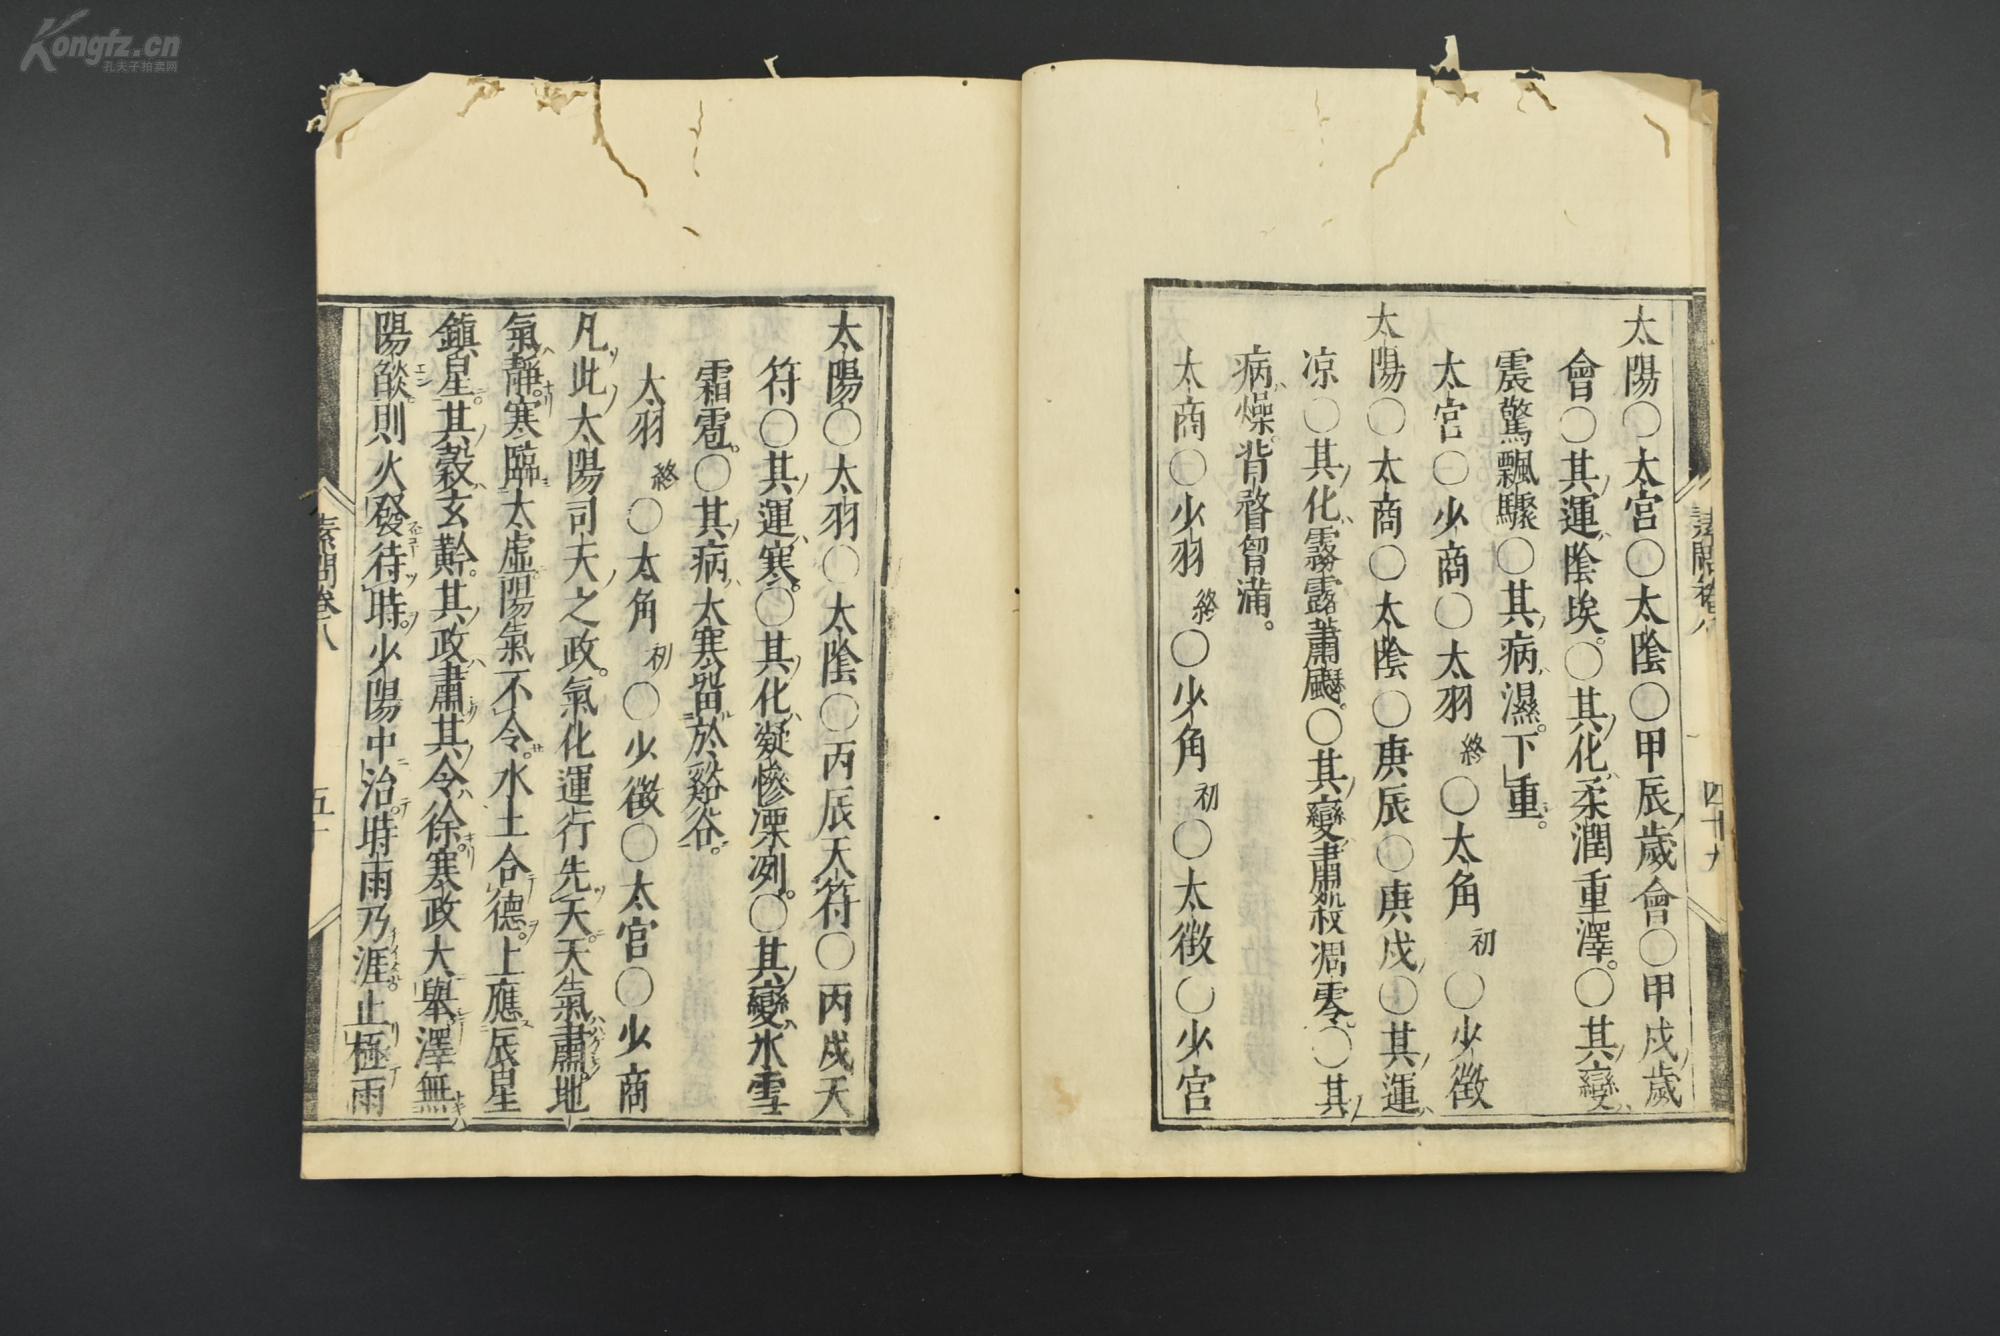 太陽○太宮○太陰○甲辰歲會○甲戌歲
會○其運陰埃。○其化柔潤重澤。○其變
震驚飄驟○其病濕。下重。
太宮○少商○太羽終○太角初○少徵
太陽○太商○太陰○庚辰○庚戌○其運
凉○其化霧露蕭飋。○其變肅殺凋零○其
病燥。背瞀胷滿。
太商○少羽終○少角初○太徵○少宮
素問卷八
四十九
太陽○太羽○太陰○丙辰天符○丙戌天
符○其運寒。○其化凝慘凓冽。○其變氷雪
霜雹。○其病太寒留於谿谷。
太羽終○太角初○少徵○太宮○少商
凡此太陽司天之政。氣化運行先天。天氣肅。地
氣靜。寒臨太虛。陽氣不令。水土合德。上應辰星
鎮星。其穀玄黅。其政肅其令徐。寒政大舉。澤無
陽燄。則火發待時。少陽中治。時雨乃涯。止極雨
素問卷八
五十
Kongfz.cn
孔夫子拍卖网